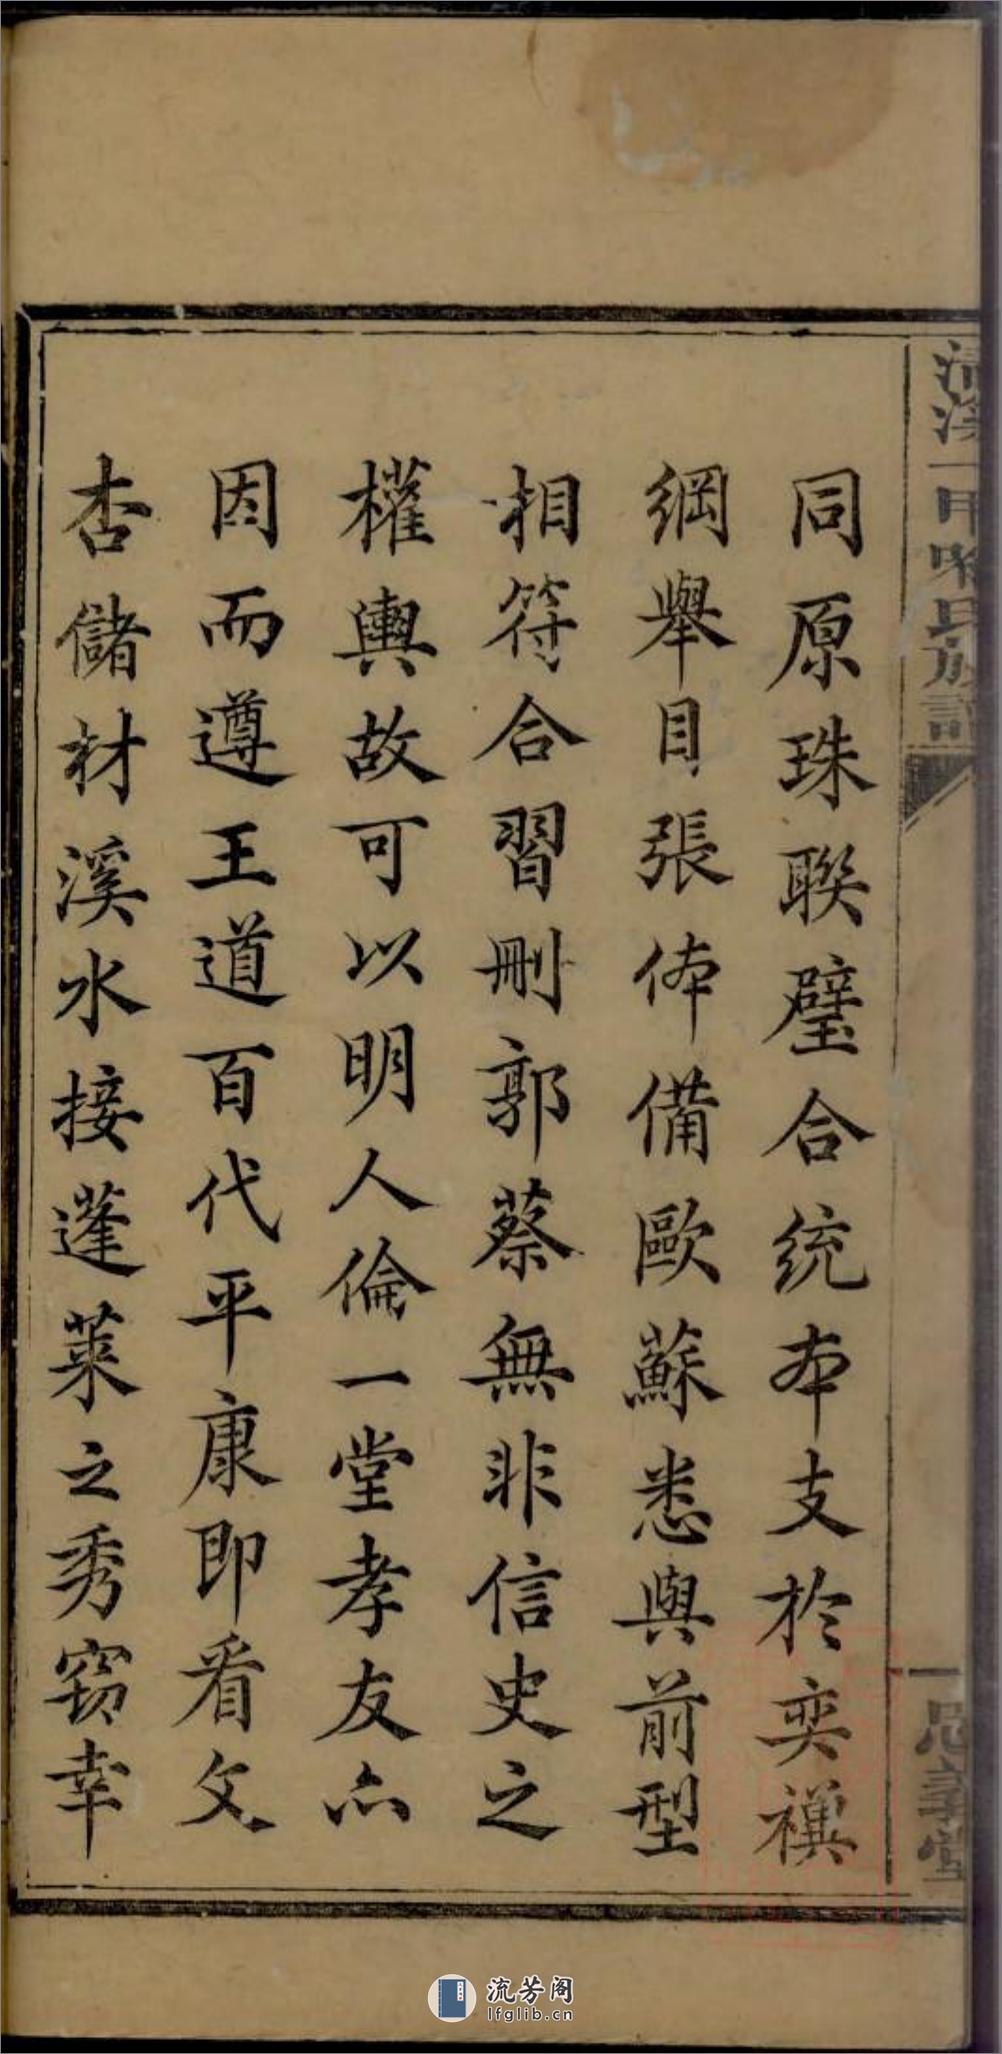 清溪一甲喻氏族譜
一
思義堂
同原珠聯璧合統本支於奕禩
綱舉目張体備歐蘇悉與前型
相符合習刪郭蔡無非信史之
權輿故可以明人倫一堂孝友亦
因而遵王道百代平康即看文
杏儲材溪水接蓬萊之秀竊幸
流芳阁
lfglib.cn